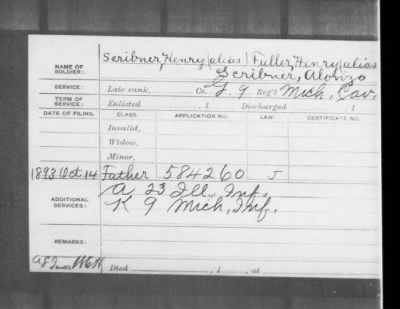 Scribner, Henry (alias) Fuller, Henry (alias
NAME OF SOLDIER: Scribner, Alonzo
SERVICE: Late rank, Co. F. 9 Reg't Mich. Cav.
TERM OF SERVICE: Enlisted , 1 Discharged , 1
DATE OF FILING. CLASS. APPLICATION NO. LAW. CERTIFICATE NO.
Invalid,
Widow,
Minor,
1893 Oct 14 Father 584260 J
A 23 Ill. Inf.
ADDITIONAL SERVICES: K 9 Mich, Inf.
REMARKS:
Died , 1 , at